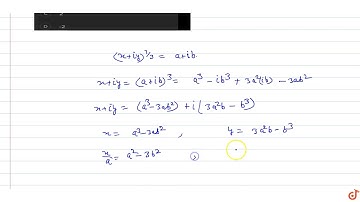 (x+iy)^1/3 = a+ib.
x+iy = (a+ib)^3 = a^3 - ib^3 + 3a^2(ib) - 3ab^2
x+iy = (a^3-3ab^2) + i(3a^2b - b^3)
x = a^3-3ab^2 , y = 3a^2b - b^3
x/a = a^2-3b^2 ;